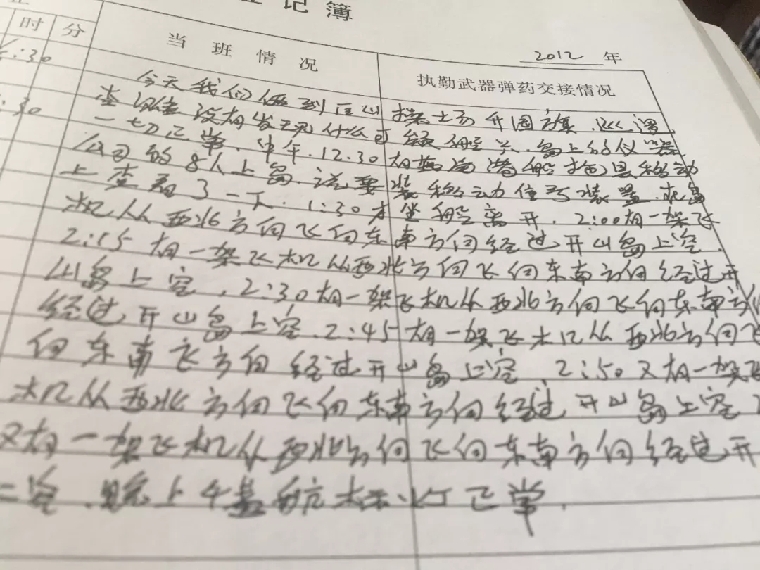 记簿
时 分
当班情况
执勤武器弹药交接情况
2012 年
:30
:30
今天我们俩到后山操场升国旗,巡逻
查 没有发现什么可 船 岛上的仪器
一切正常。中午12:30有 船 移动
公司的8人上岛,说要装移动信号装置,来岛
上查看了一下,1:30才坐船离开,2:00有一架飞
机从西北方向飞向东南方向经过开山岛上空,
2:15有一架飞机从西北方向飞向东南方向经过开
山岛上空,2:30有一架飞机从西北方向飞向东南方向
经过开山岛上空,2:45有一架飞机从西北方向飞
向东南飞方向经过开山岛上空 2:50又有一架飞
机从西北方向飞向东南方向经过开山岛上空
又有一架飞机从西北方向飞向东南方向经过开
上空,晚上4盏航标灯正常.